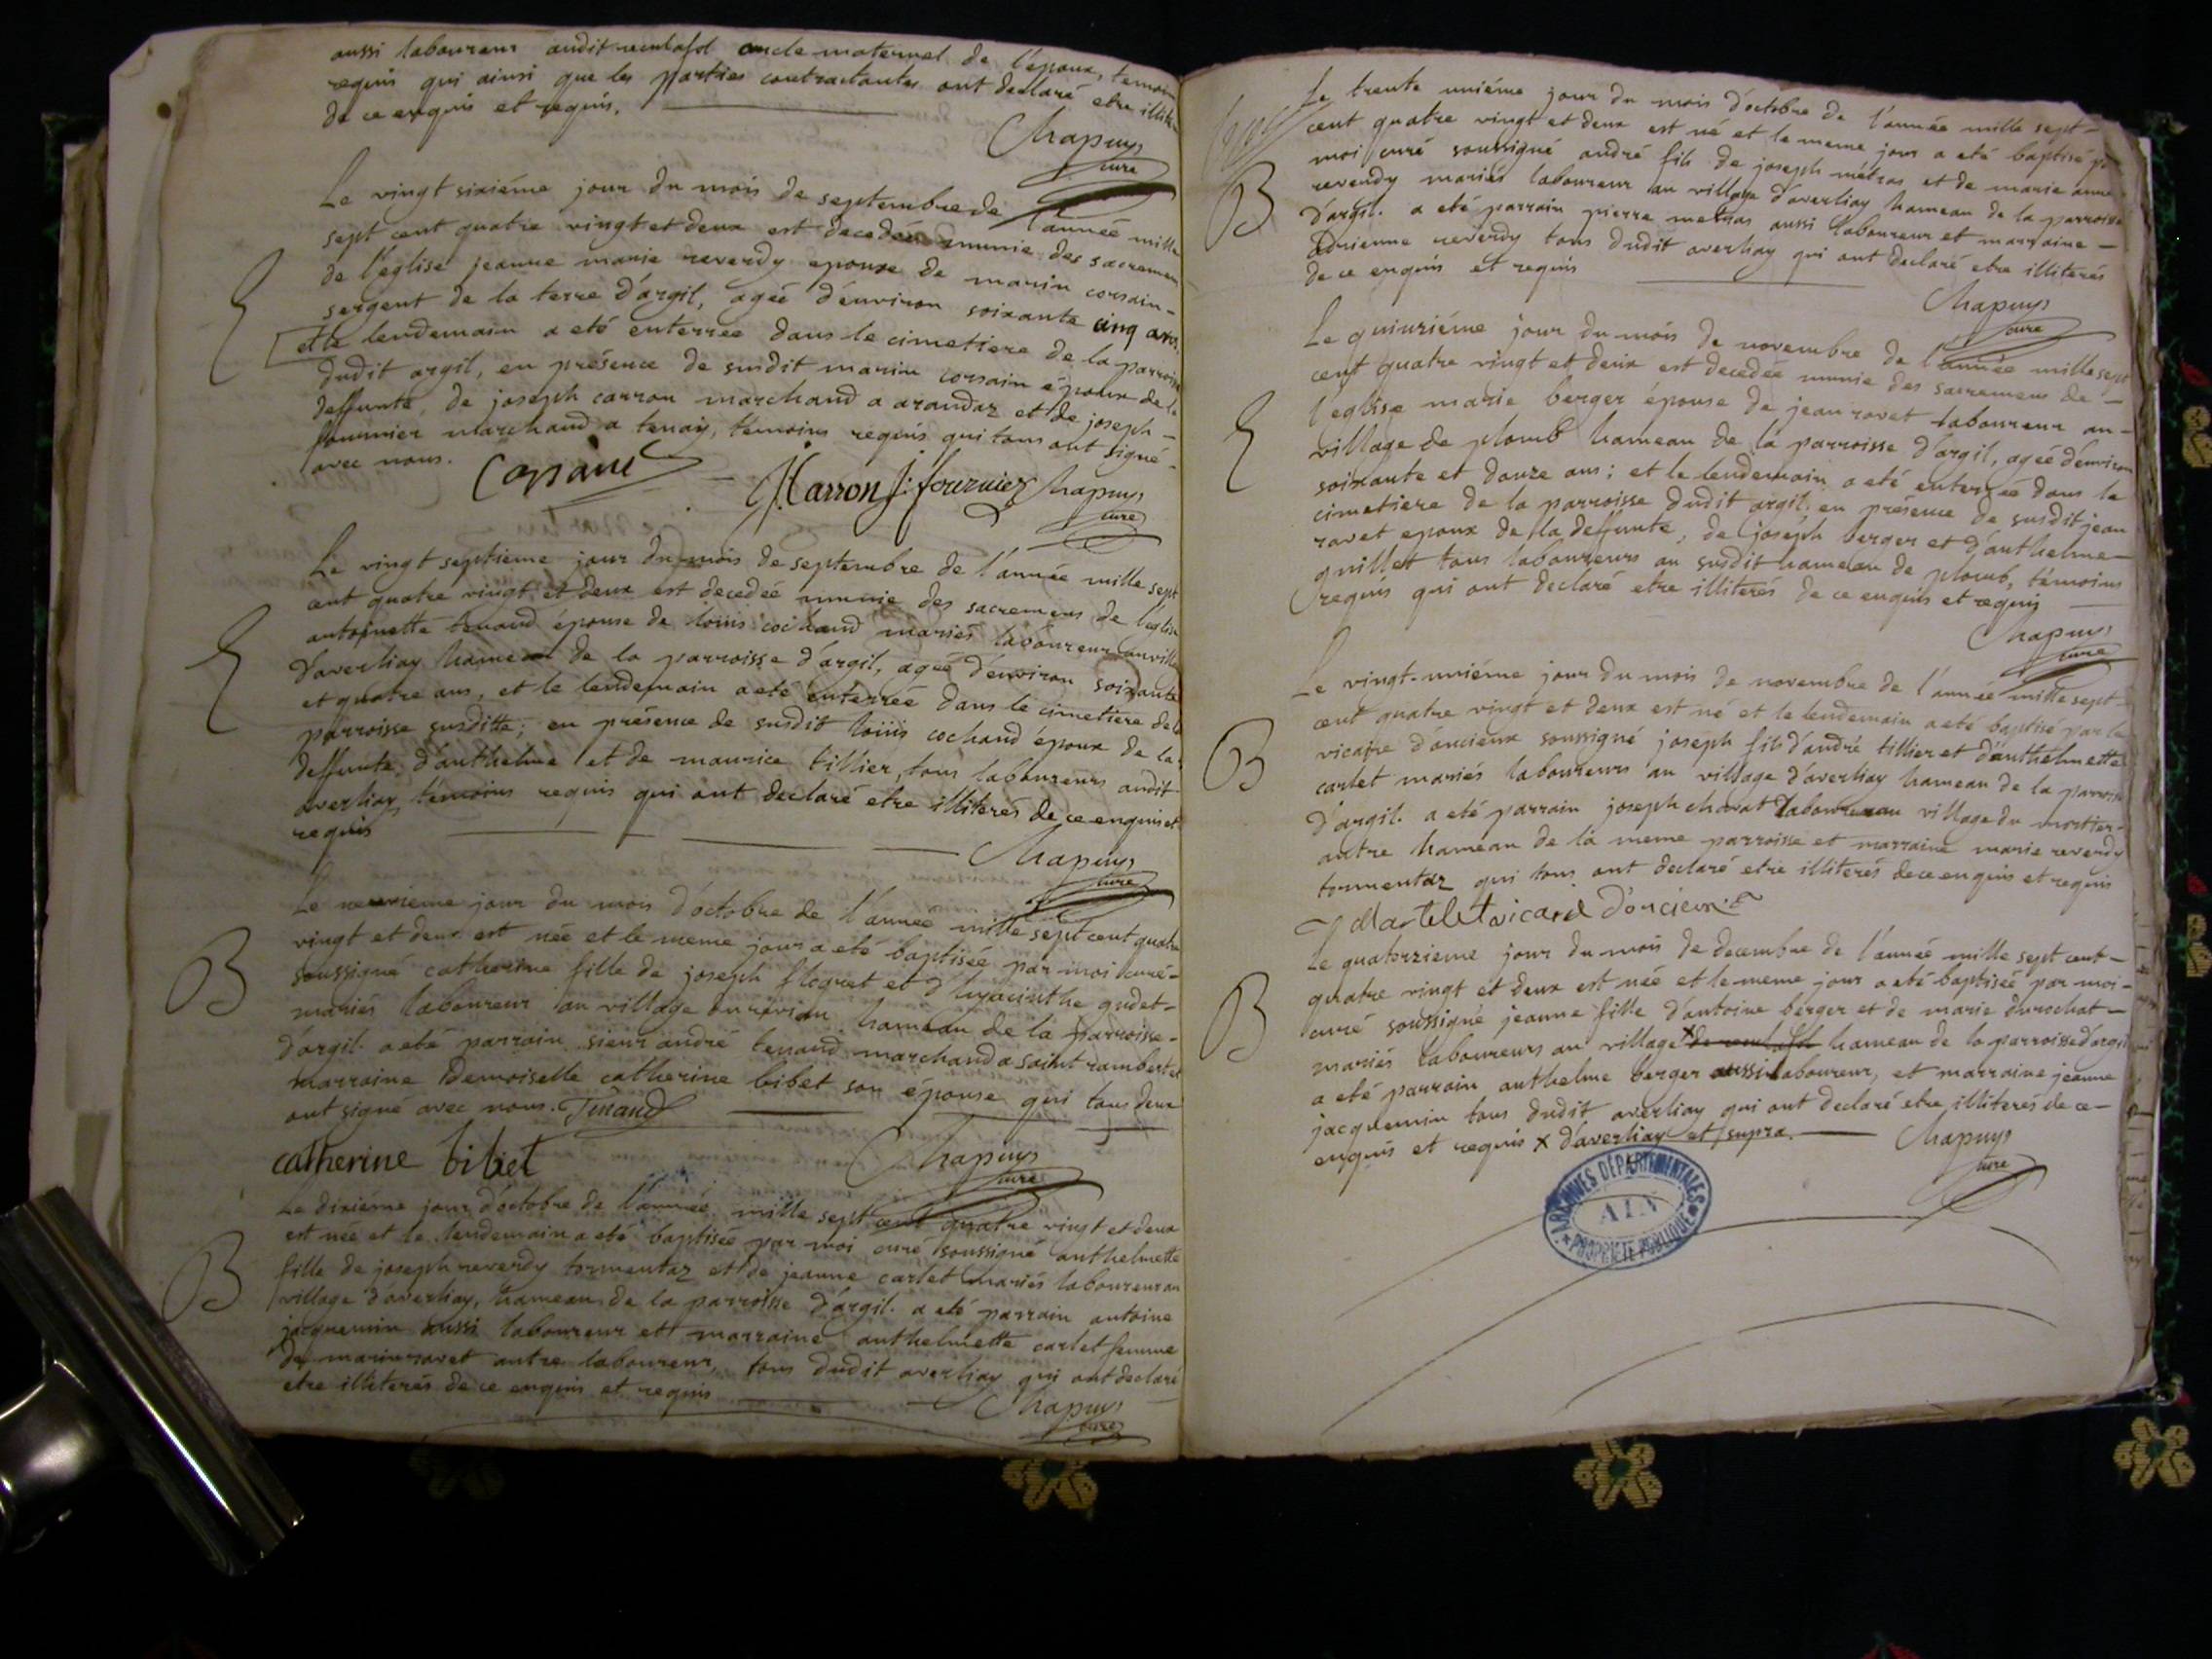 aussi laboureur audit oncle maternel de l'epoux, temoins
requis qui ainsi que les parties contractantes ont declaré etre illite-
de ce enquis et requis.
Chapuys
curé
Le vingt sixiéme jour du mois de septembre de l'année mille
sept cent quatre vingt et deux est decedée munie des sacremens
de l'eglise jeanne marie reverdy epouse de marin corsain-
sergent de la terre d'argil, ageé d'environ soixante cinq ans,
et le lendemain a eté enterrée dans le cimetiere de la parroisse
dudit argil, en présence de susdit marin corsain époux de la
deffunte, de joseph carron marchand a arandaz et de joseph -
fournier marchand a tenay, temoins requis qui tous ont signé
avec nous.
Corsain J. Carron J. fournier Chapuys
curé
E
Le vingt septieme jour du mois de septembre de l'année mille sept
cent quatre vingt et deux est decedeé munie des sacremens de l'eglise
antoinette tenand épouse de loüis cochand mariés laboureur au villa
d'averliay hameau de la parroisse d'argil, ageé d'environ soixante
et quatre ans, et le lendemain a eté enterrée dans le cimetiere de la
parroisse susditte; en présence de susdit loüis cochand époux de la
deffunte, d'anthelme et de maurice tillier, tous laboureurs audit
averliay témoins requis qui ont declaré etre illiterés de ce enquis et
requis
Chapuys
curé
E
Le neuvieme jour du mois d'octobre de l'année mille sept cent quatre
vingt et deux est née et le meme jour a eté baptisée par moi curé-
soussigné catherine fille de joseph floquet et d'hyacinthe gudet-
mariés laboureur au village hameau de la parroisse-
d'argil. a eté parrain sieur andré tenand marchand a saint rambert et
marraine demoiselle catherine bibet son épouse qui tous deux
ont signé avec nous. Tenand
catherine bibet
Chapuys
curé
B
Le dixiéme jour d'octobre de l'année mille sept cent quatre vingt et deux
est née et le lendemain a eté baptisée par moi curé soussigné anthelmette
fille de joseph reverdy tormentaz et de jeanne carlet mariés laboureur au
village d'averliay, hameau de la parroisse d'argil. a eté parrain antoine
jacquemin aussi laboureur et marraine anthelmette carlet femme
de marin ravet autre laboureur, tous dudit averliay qui ont declaré
etre illiterés de ce enquis et requis
Chapuys
curé
B
Le trente uniéme jour du mois d'octobre de l'année mille sept-
cent quatre vingt et deux est né et le meme jour a eté baptisé p
moi curé soussigné andré fils de joseph métras et de marie anne
reverdy mariés laboureur au village d'averliay hameau de la parroisse
d'argil. a eté parrain pierre metras aussi laboureur et marraine -
adrienne reverdy tous dudit averliay qui ont declaré etre illiterés
de ce enquis et requis
Chapuys
curé
B
Le quinziéme jour du mois de novembre de l'année mille sept
cent quatre vingt et deux est decedée munie des sacremens de -
l'eglise marie berger épouse de jean ravet laboureur au-
village de plomb hameau de la parroisse d'argil, ageé d'environ
soixante et douze ans; et le lendemain a eté enterreé dans le
cimetiere de la parroisse dudit argil. en présence de susdit jean
ravet epoux de la deffunte, de joseph berger et d'anthelme-
guillet tous laboureurs au susdit hameau de plomb, témoins
requis qui ont declaré etre illiterés de ce enquis et requis
Chapuys
curé
E
Le vingt-uniéme jour du mois de novembre de l'année mille sept-
cent quatre vingt et deux est né et le lendemain a eté baptisé par le
vicaire d'oncieux soussigné joseph fils d'andré tillier et d'anthelmette
carlet mariés laboureurs au village d'averliay hameau de la parroisse
d'argil. a eté parrain joseph chavat laboureur au village du mortier-
autre hameau de la meme parroisse et marraine marie reverdy
tormentaz qui tous ont declaré etre illiterés de ce enquis et requis
Martelet vicaire d'oncieux
B
Le quatorzieme jour du mois de decembre de l'année mille sept cent-
quatre vingt et deux est née et le meme jour a eté baptiseé par moi-
curé soussigné jeanne fille d'antoine berger et de marie durochat-
mariés laboureurs au village x hameau de la parroisse d'argil
a eté parrain anthelme berger aussi laboureur, et marraine jeanne
jacquemin tous dudit averliay qui ont declaré etre illiterés de ce-
enquis et requis x d'averliay et supra.
Chapuys
curé
B
ARCHIVES DÉPARTEMENTALES
AIN
PROPRIÉTÉ PUBLIQUE